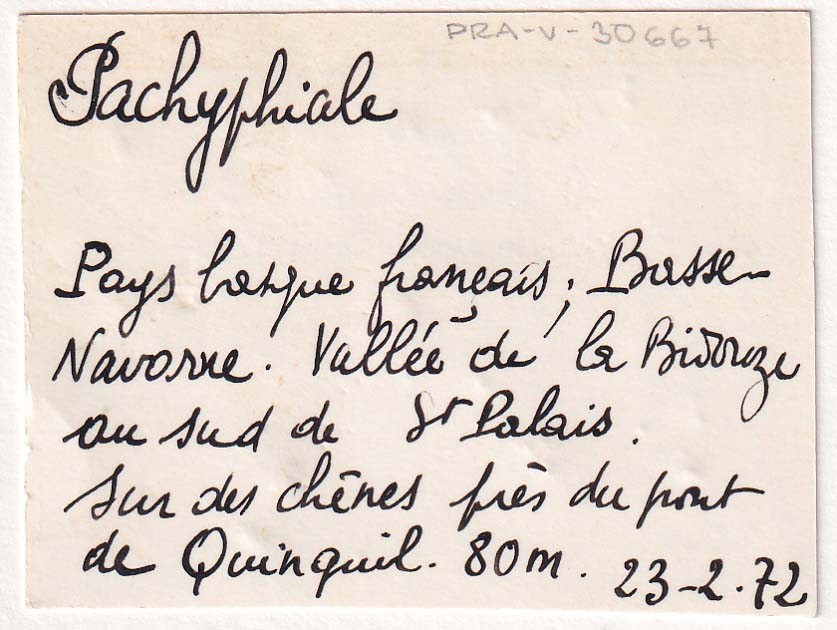 PRA-V-30667
Pachyphiale
Pays basque français; Basse-
Navarre. Vallée de la Bidouze
au sud de St Palais.
Sur des chênes près du pont
de Quinquil. 80m. 23-2-72